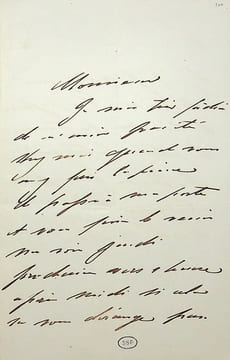 Monsieur
Je suis très
de n'avoir pas été
chez moi quand vous
avez pris la peine
de passer à ma porte
et vous prie de venir
me voir jeudi
prochain vers 2 heures
après midi si cela
ne vous dérange pas.